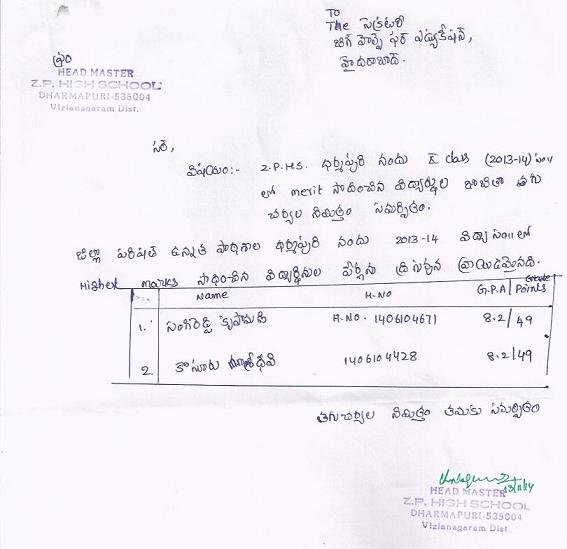 To
The సెక్రటరీ
బిగ్ హెల్ప్ ఫర్ ఎడ్యుకేషన్,
హైదరాబాద్.
ఫ్రం
HEAD MASTER
Z.P. HIGH SCHOOL
DHARMAPURI-535004
Vizianagaram Dist.
సర్,
విషయం:- Z.P.H.S. ధర్మపురి నందు X class (2013-14) సం॥
లో merit సాధించిన విద్యార్థుల జాబితా తగు
చర్యల నిమిత్తం సమర్పితం.
జిల్లా పరిషత్ ఉన్నత పాఠశాల ధర్మపురి నందు 2013-14 విద్యా సం॥లో
Highest marks సాధించిన విద్యార్థినుల పేర్లను దిగువన వ్రాయడమైనది.
Name H.NO G.P.A/Grade Points
1. సంగిరెడ్డి కృపామణి H.NO. 1406104671 8.2/49
2 కాసూరు శ్రీదేవి 1406104428 8.2/49
తగుచర్యల నిమిత్తం తమకు సమర్పితం
13/11/14
HEAD MASTER
Z.P. HIGH SCHOOL
DHARMAPURI-535004
Vizianagaram Dist.